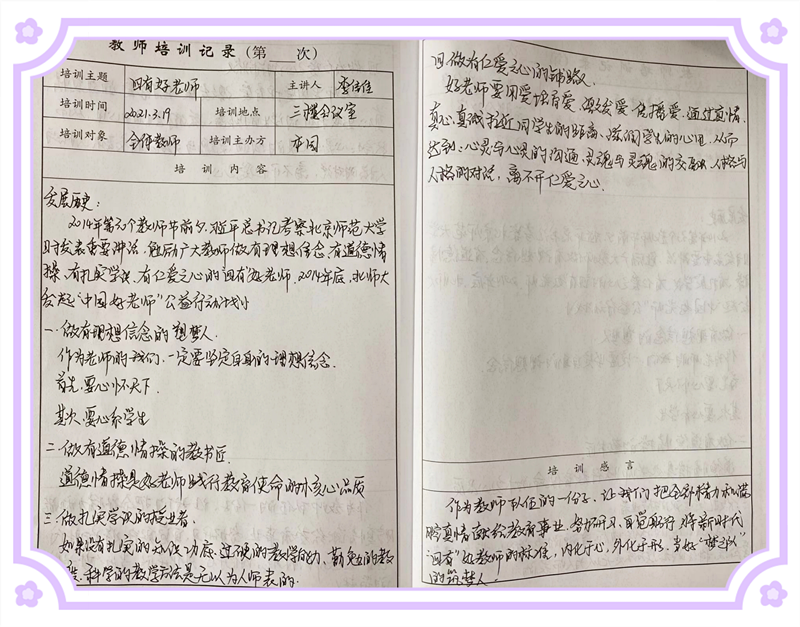 教师培训记录（第　　次）
培训主题 四有好老师 主讲人 李佳佳
培训时间 2021.3.19 培训地点 三楼会议室
培训对象 全体教师 培训主办方 本园
培训内容
发展历史：
2014年第三十个教师节前夕，习近平总书记考察北京师范大学
时发表重要讲话，勉励广大教师做有理想信念、有道德情
操、有扎实学识、有仁爱之心的“四有”好老师，2014年底，北师大
发起“中国好老师”公益行动计划
一、做有理想信念的塑梦人.
作为老师的我们，一定要坚定自身的理想信念.
首先，要心怀天下.
其次，要心系学生
二、做有道德情操的教书匠
道德情操是好老师践行教育使命的核心品质
三、做扎实学识的授业者.
如果没有扎实的知识功底、过硬的教学能力、勤勉的教
、科学的教学方法是无以为人师表的.
四、做有仁爱之心的铺路人.
好老师要用爱培育爱、激发爱、传播爱，通过真情、
真心、真诚拉近同学生的距离，滋润学生的心田，从而
达到，心灵与心灵的沟通，灵魂与灵魂的交融、人格与
人格的对话，离不开仁爱之心.
培训感言
作为教师队伍的一份子，让我们把全部精力和满
腔真情献给教育事业，、将新时代
“四有”好教师的标准，内化于心，外化于形，当好“梦之队”
的筑梦人.